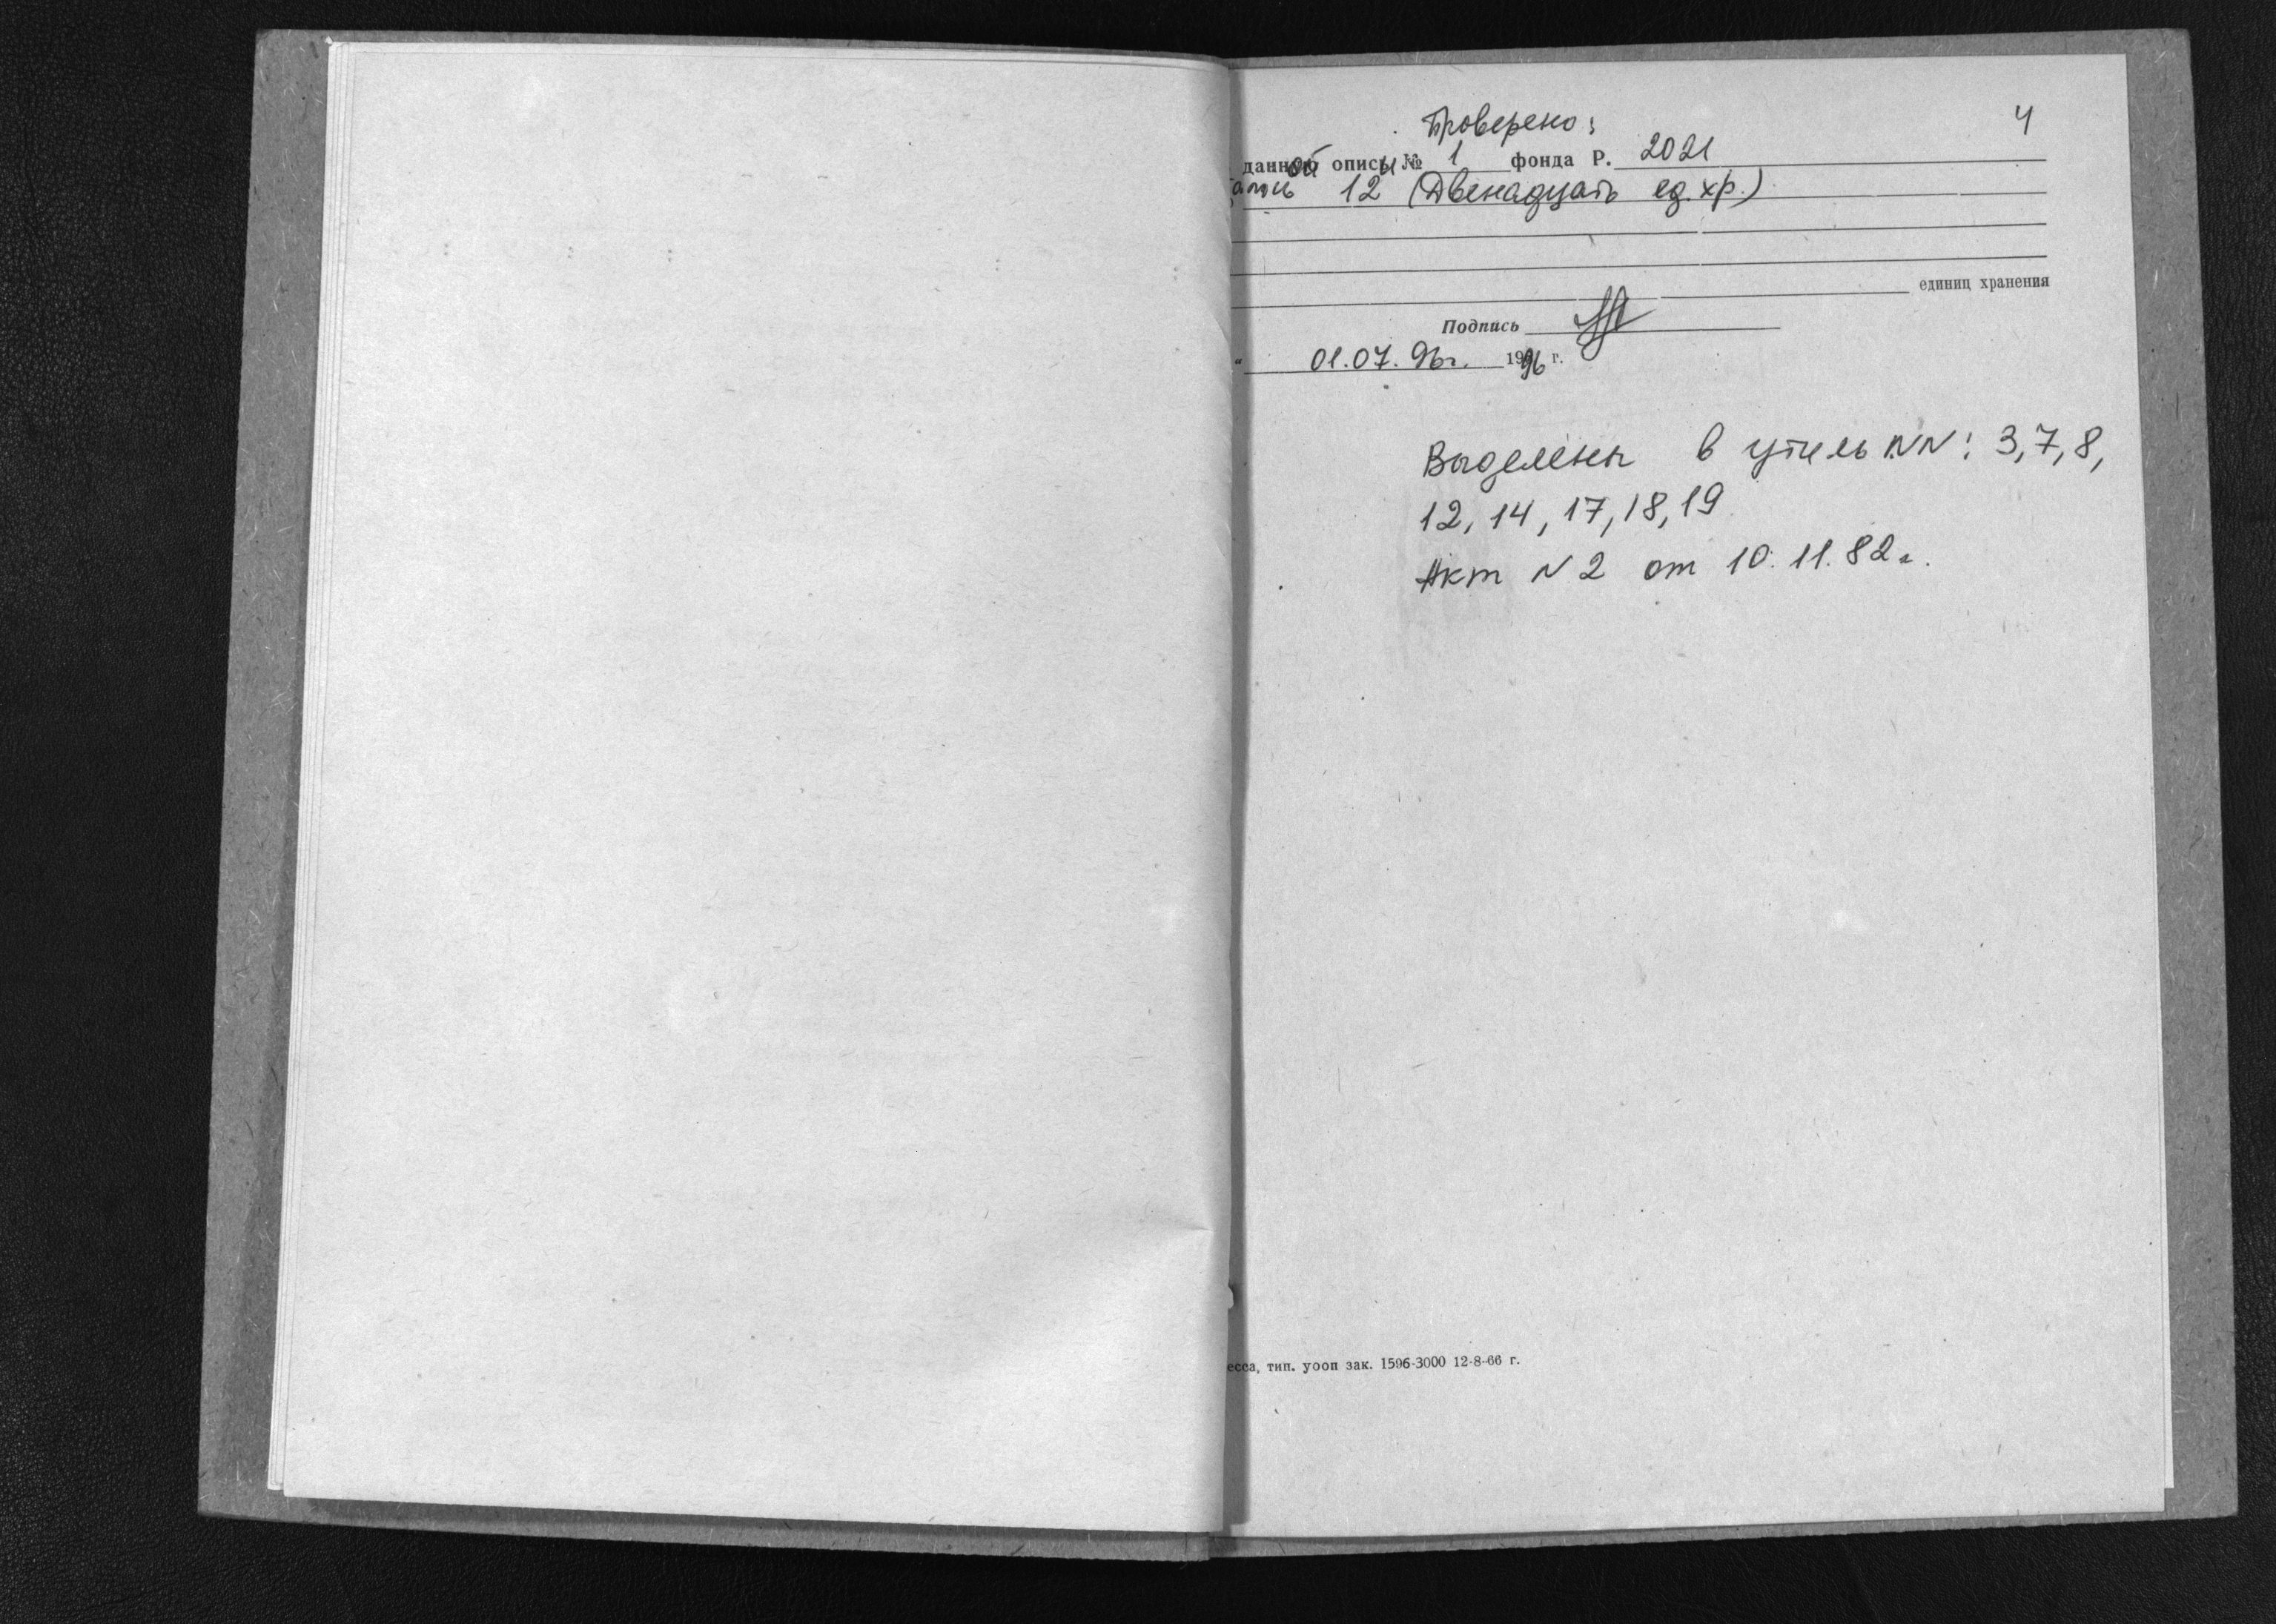 Проверено:
4
данной описи № 1 фонда Р. 2021
12 (Двенадцать ед. хр.)
единиц хранения
Подпись
" 01.07.96г. 1996 г.
Выделены в утиль NN: 3, 7, 8,
12, 14, 17, 18, 19
Акт N 2 от 10.11.82 г.
есса, тип. уооп зак. 1596-3000 12-8-66 г.